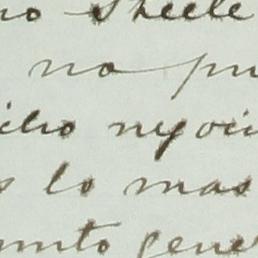 no Sheele
na pu
cho nyoci
s lo mas
unto gene